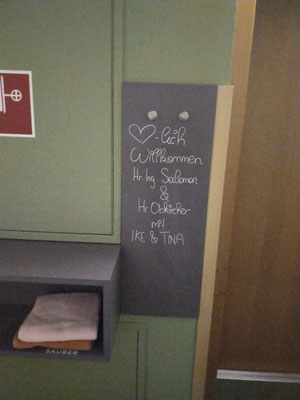 ♡-lich
Willkommen
Hr Ing. Salomon
&
Hr
mit
IKE & TINA
SAUBER